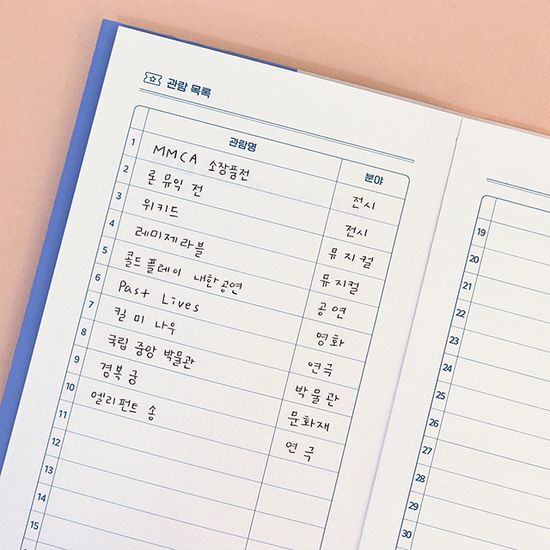 관람 목록
관람명 분야
1 MMCA 소장품전 전시
2 론 뮤익 전 전시
3 위키드 뮤지컬
4 레미제라블 뮤지컬
5 콜드플레이 내한공연 공연
6 Past Lives 영화
7 킬 미 나우 연극
8 국립 중앙 박물관 박물관
9 경복궁 문화재
10 엘리펀트 송 연극
11
12
13
14
15
19
20
21
22
23
24
25
26
27
28
29
30